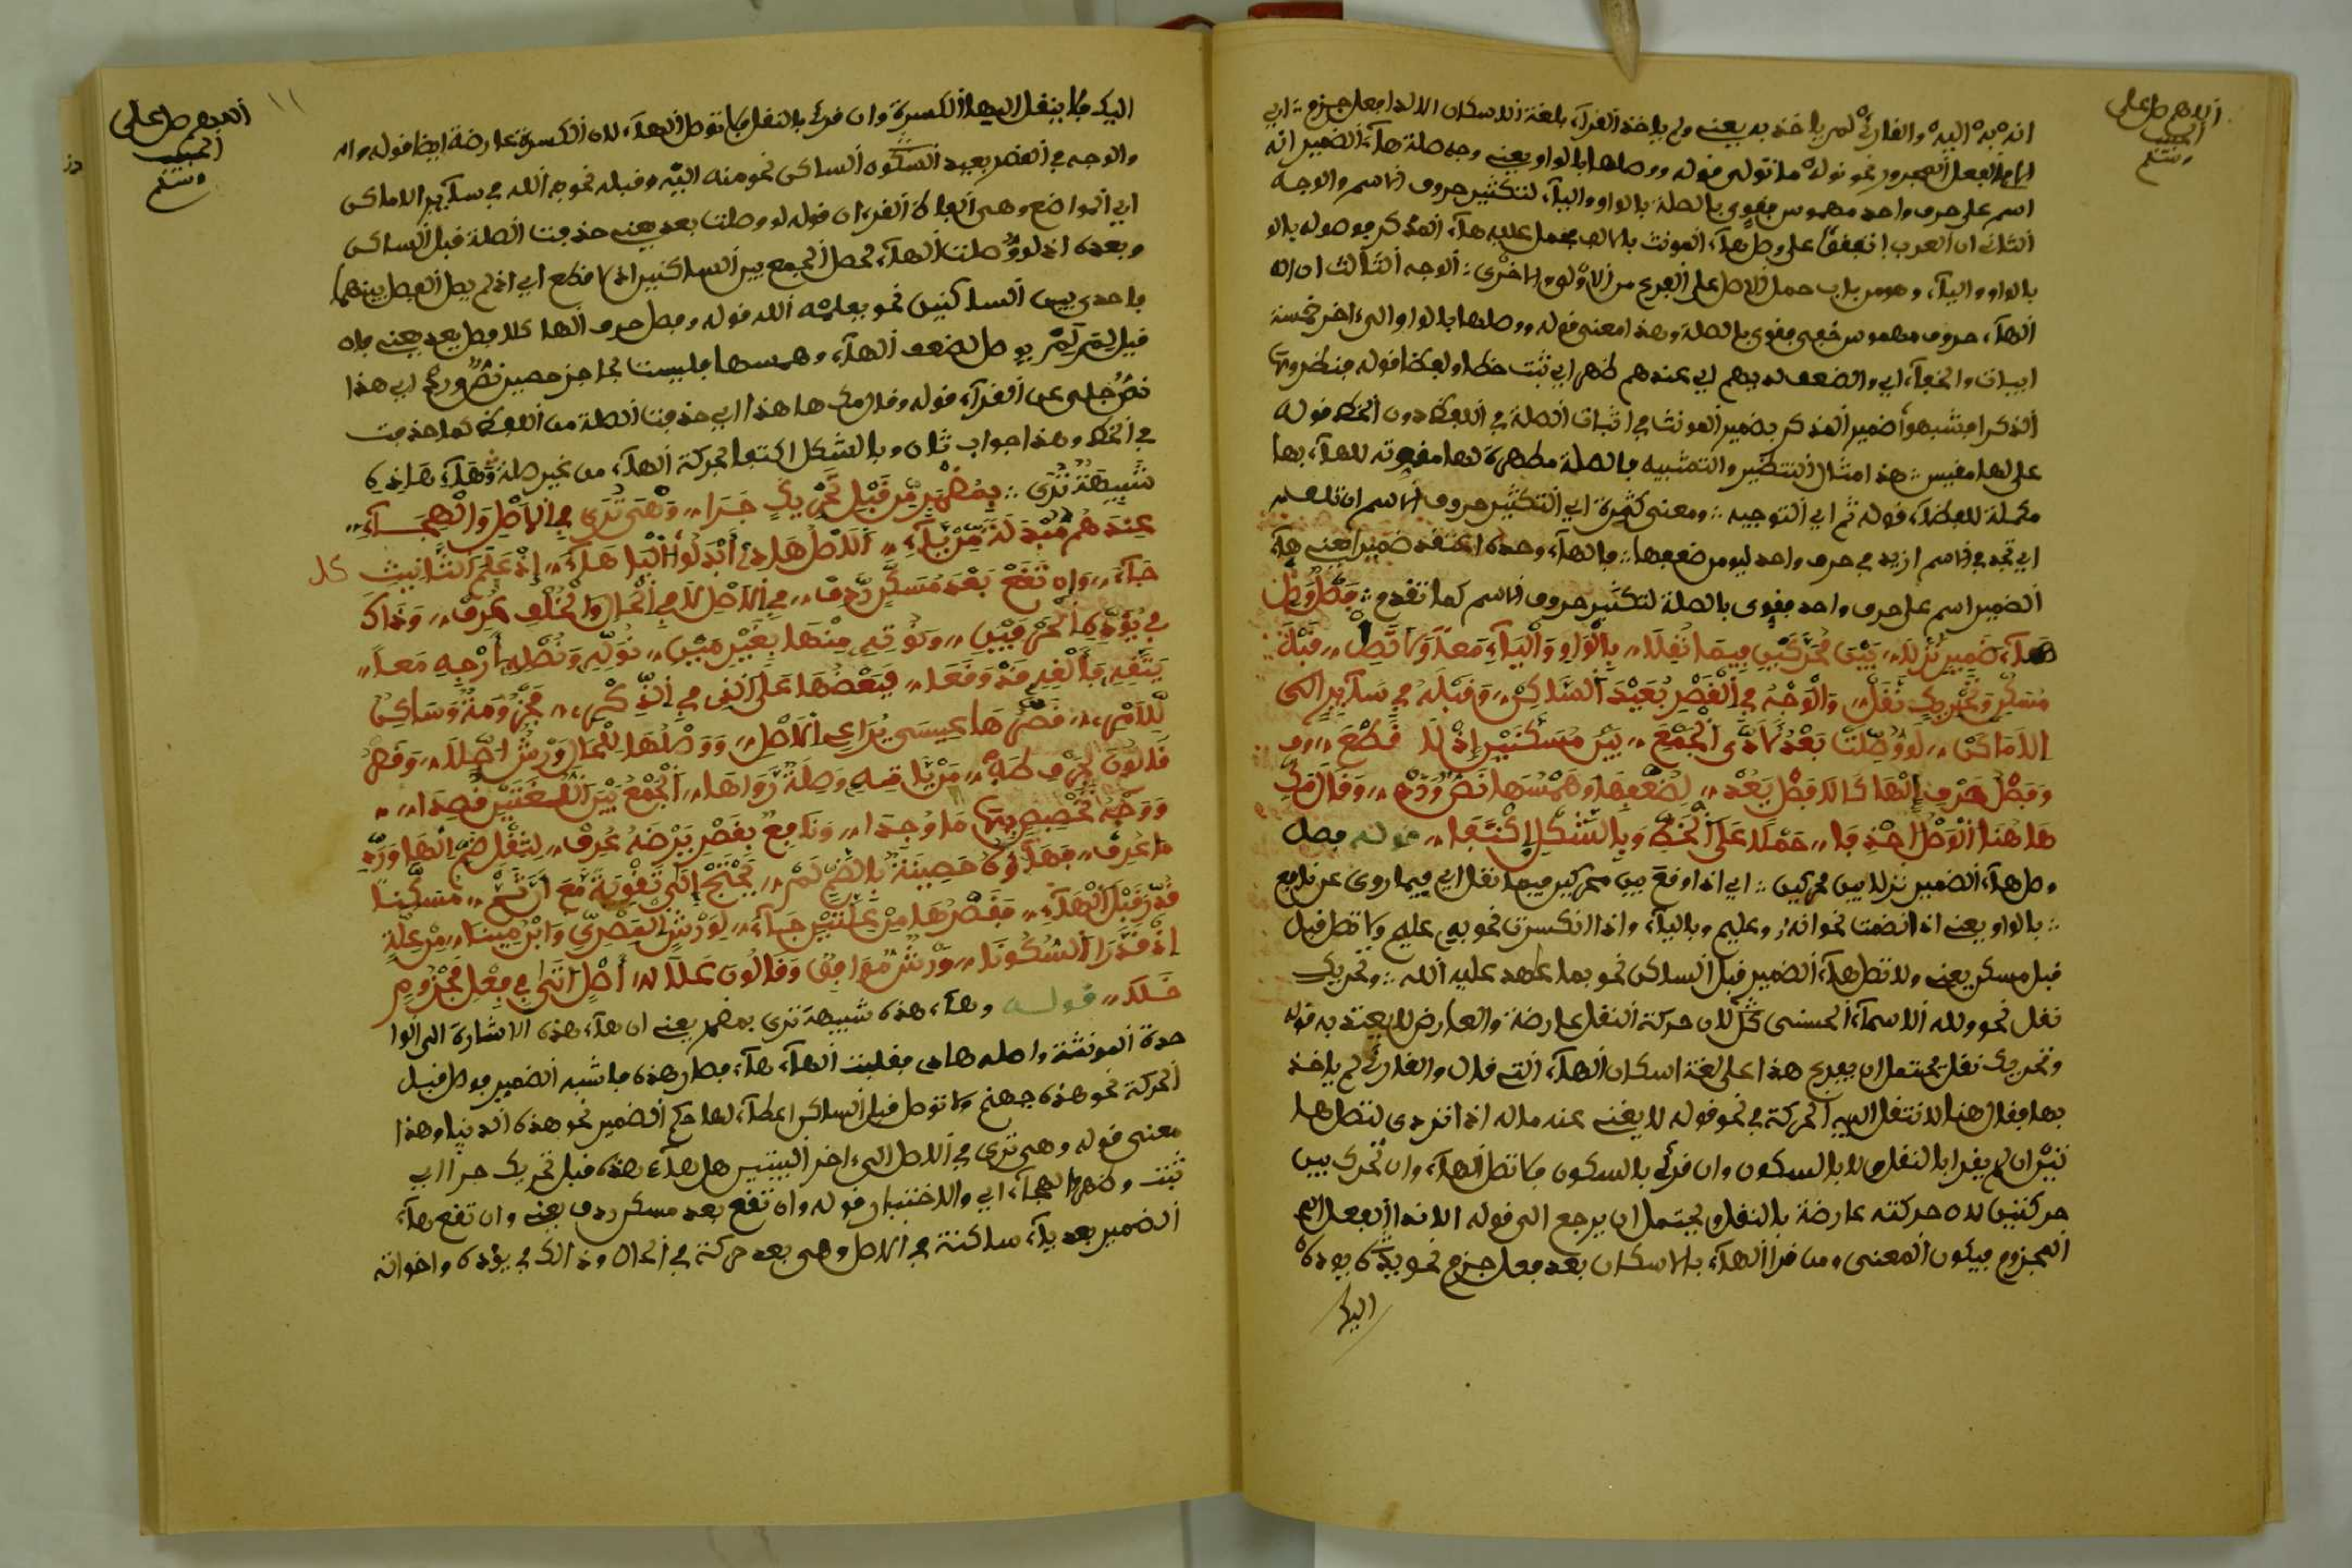 اللهم صل على
الحبيب
وسلم
انه به اليه والقارئ لم ياخذ به يعنى ولم ياخذ القراء بلغة الاسكان الا اذا فعل جزم اي
الفعل المجزوم نحو نوله ما تولى قوله ووصلها بالواو يعنى وجه صلة هاء الضمير انه
اسم على حرف واحد مهموس فقوي بالصلة بالواو والياء لتكثير حروف الاسم والوجه
الثانى ان العرب اتفقوا على وصل هاء المونث بالالف فحمل عليه هاء المذكر موصوله بالو
بالواو والياء وهو من باب حمل الاصل على الفرع من الاولى والاخرى الوجه الثالث ان اله
الهاء حرف مهموس خفى فقوى بالصلة وهذا معنى قوله ووصلها بالواو الى اخر خمسة
ابيات والخفاء اي والضعف لديهم اي عندهم ظهر اي ثبت خطا ولفظا قوله
الذكر فشبهوا ضمير المذكر بضمير المونث في اثبات الصلة في اللفظ دون الخط قوله
على لها مقيس هذا مثال التنظير والتشبيه فالصلة مظهرة لها مقوية للهاء بها
مكملة للفظا قوله ثم اي التوجيه ومعنى كثرة اي التكثير حروف الاسم ان
اي تجد في الاسم ازيد في حرف واحد ليومن ضعفها فالهاء وحده اعتقد ضميرا يعنى هاء
الضمير اسم على حرف واحد فقوى بالصلة لتكثير حروف الاسم كما تقدم فصل وصل
هاء ضمير نزلا بين محركين فيما نقلا بالواو والياء معا ولا تصل قبله
مسكن وتحريك نقل والوجه في القصر بعيد الساكن وقبله في ساير الى
الاماكن لو وصلت بعد لادى الجمع بين مسكنين اذ لا قطع
وفصل حرف الها كالا فصل يعد لضعفها وهمسها نص ورد وقال مك
ها هنا الوصل احذفا حملا على الخط وبالشكل اكتفا قوله فصل
وصل هاء الضمير نزلا بين محركين اي اذا وقع بين محركين فيما نقل اي فيما روى عن نافع
بالواو يعنى اذا انضمت نحو انه وعليه وبالياء واذا انكسرت نحو به عليه ولا تصل قبل
قبل مسكن يعنى ولا تصل هاء الضمير قبل الساكن نحو بما عاهد عليه الله وتحريك
نقل نحو ولله الاسماء الحسنى كل لان حركة النقل عارضة والعارض لا يعتد به قوله
وتحريك نقل يحتمل ان يفرع هذا على لغة اسكان الهاء التى قال والقارئ لم ياخذ
بها فقال هنا لا تنقل اليه الحركة في نحو قوله لا يغنى عنه ماله اذا تردى لتصلها
تيران لم يقرا بالنقل ولا بالسكون وان قرئ بالسكون فلا تصل الهاء وان تحرك بين
حركتين لان حركته عارضة بالنقل ويحتمل ان يرجع الى قوله الا اذا الفعل
المجزوم فيكون المعنى ومن قرا الهاء بالاسكان بعد فعل جزم نحو يوده
اليك
اللهم صل على
الحبيب
وسلم
١١
اليك فلا ينقل اليها الكسرة وان قرئ بالنقل فلا توصل الهاء لان الكسرة عارضة ايضا قوله وال
والوجه في القصر بعيد السكون الساكن نحو منه اليه وقبله نحو الله في ساير الاماكن
اي المواضع وهي القراءة قوله لو وصلت بعد يعنى حذفت الصلة قبل الساكن
وبعده اذ لو وصلت الهاء لحصل الجمع بين الساكنين اذ لا قطع اي اذ لم يصل الفصل بينهما
باحدى بين الساكنين نحو يعلمه الله قوله وفصل حرف الها كلا فصل يعد يعنى فان
قيل لم لم يوصل لضعف الهاء وهمسها فليست بحاجز حصين نص ورد اي هذا
نص جلى عن القراء قوله وقال مك ها هنا اي حذفت الصلة من اللفظ كما حذفت
في الخط وهذا جواب ثان وبالشكل اكتفا بحركة الهاء من غير صلة وهاء هاذي
شبيهة ترى بمضمر من قبل تحريك جرا وهى ترى في الاصل والهجاء
عندهم مبدلة من ياء الاصل هاذي ابدلوا اليا هاء اذ علم التانيث كل
جاء وان تقع بعد مسكن ردف في الاصل لا في الحال والخلف عرف وذاك
في يوده المبين ونوته منها بغير مين نوله ونصله ارجه معا
يتقه فالقه قد وقعا فبعضها على الذى في الذكر مجزومة وساكن
للامر فقصرها عيسى يراعى الاصل ووصلها للحال ورش اصلا وقصر
قالون لحرف طه من ياته وصلة رواها الجمع بين اللغتين قصدا
ووجه تخصيصها ما وجدا ونافع بقصر يرضه عرف لثقل ضم الها ورد
ما عرف فهاؤه حصينة بالضم لم تحتج الى تقوية مع ان تم مسكنا
قدر قبل الهاء فقصرها من علتين جاء لورش المصرى وابن مينا من علة
اذ قدرا السكونا ورش موافق وقالون علا له اصل اتى في فعل مجزوم
خلا قوله وهاء هذه شبيهة ترى بمضمر يعنى ان هاء هذه الاشارة الى الوا
حدة المونثة واصله هاذي فقلبت الهاء هاء فصار هذه فاشبه الضمير فوصل قبل
الحركة نحو هذه جهنم ولا توصل قبل الساكن اعطاء لها حكم الضمير نحو هذه الدنيا وهذا
معنى قوله وهى ترى في الاصل الى اخر البيتين هل هاء هذه قبل تحريك جرا اي
ثبت الهجاء اي والاختبار قوله وان تقع بعد مسكن ردف يعنى وان تقع هاء
الضمير بعد ياء ساكنة في الاصل وهى بعد حركة في الحال وذالك في يوده واخواته